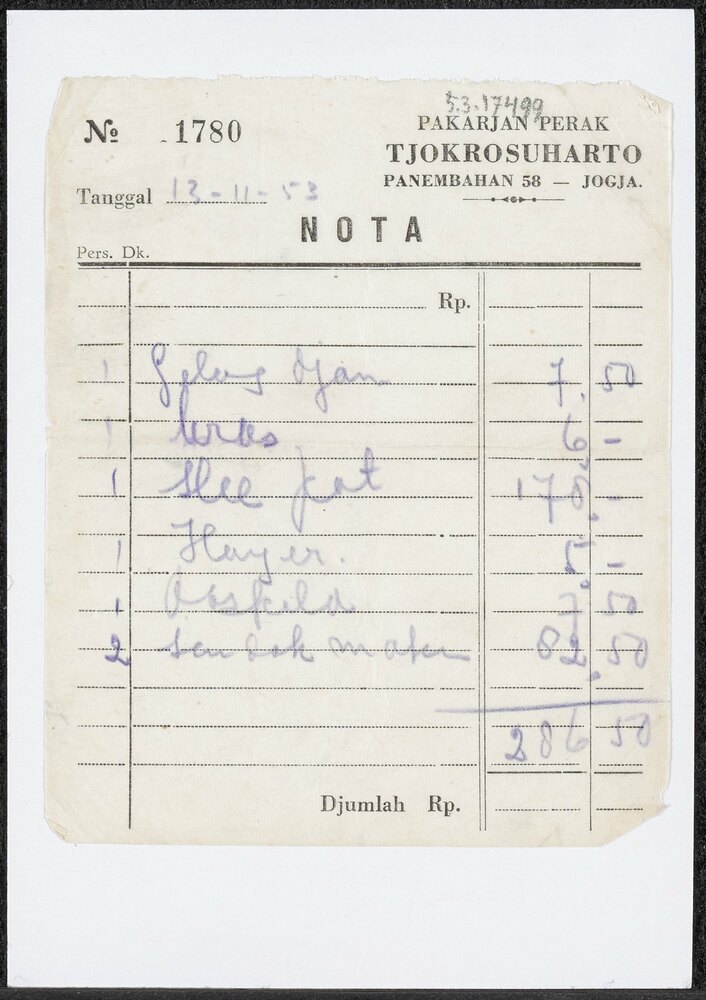 5.3.17499
№ 1780
PAKARJAN PERAK
TJOKROSUHARTO
PANEMBAHAN 58 — JOGJA.
Tanggal 13-11-53
NOTA
Pers. Dk.
Rp.
1 Gelang djam 7.50
1 bros 6,-
1 slee pot 178,-
1 Hanger. 5,-
1 7 50
2 sendok makan 82,50
286 50
Djumlah Rp.